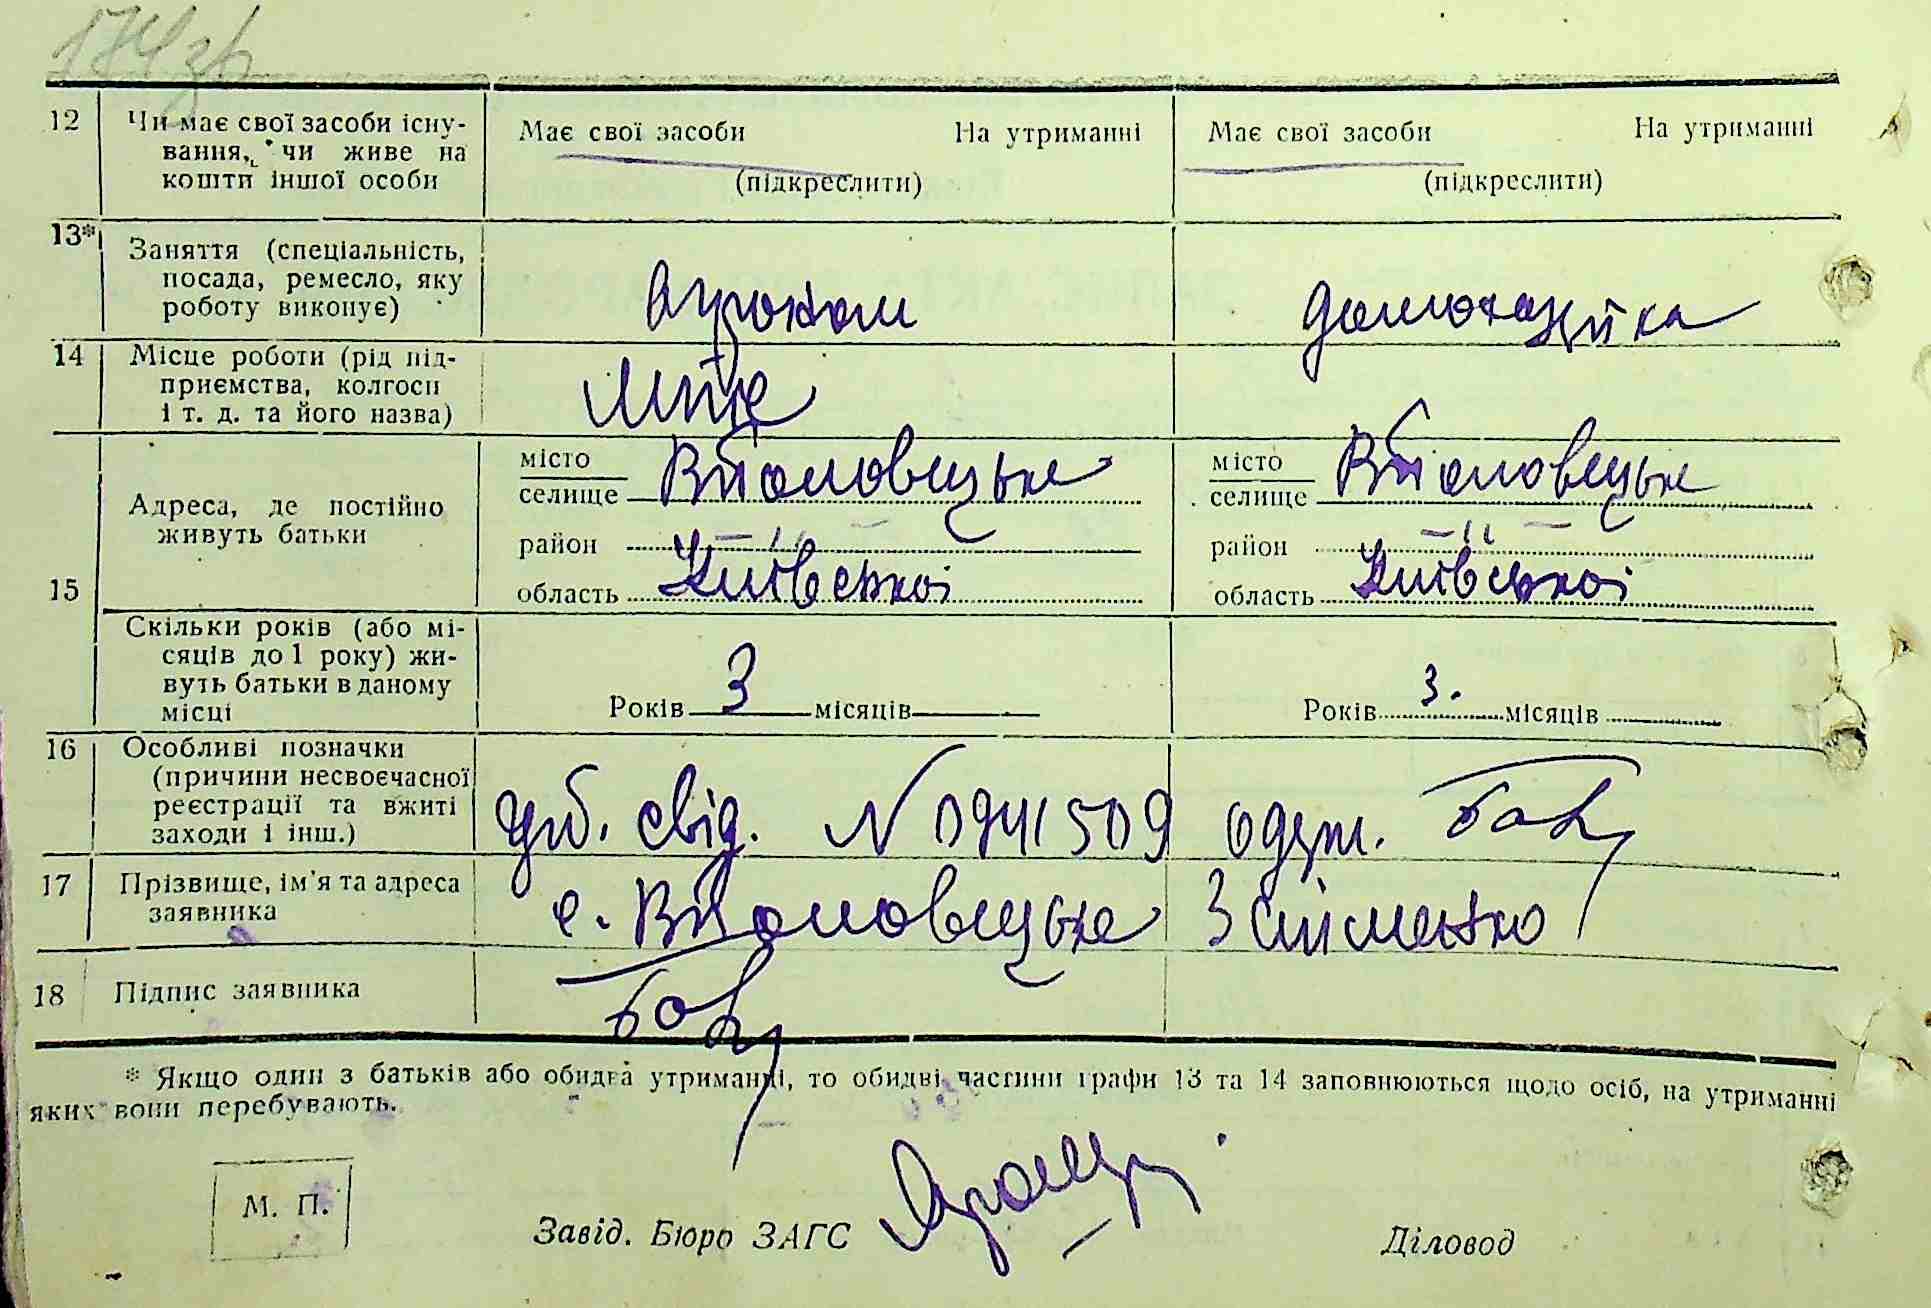 174зр
12 Чи має свої засоби існу-
вання, чи живе на
кошти іншої особи
Має свої засоби На утриманні
(підкреслити)
Має свої засоби На утриманні
(підкреслити)
13* Заняття (спеціальність,
посада, ремесло, яку
роботу виконує)
Агроном
домохазяйка
14 Місце роботи (рід під-
приємства, колгосп
і т. д. та його назва)
15 Адреса, де постійно
живуть батьки
місто
селище
район —〃—
область Київської
місто
селище
район —〃—
область Київської
Скільки років (або мі-
сяців до 1 року) жи-
вуть батьки в даному
місці
Років 3 місяців
Років 3. місяців
16 Особливі позначки
(причини несвоєчасної
реєстрації та вжиті
заходи і інш.)
свід. N 0941509 одерж.
17 Прізвище, ім'я та адреса
заявника
с.
18 Підпис заявника
* Якщо один з батьків або обидва утриманні, то обидві частини графи 13 та 14 заповнюються щодо осіб, на утриманні
яких вони перебувають.
М. П.
Завід. Бюро ЗАГС
Діловод